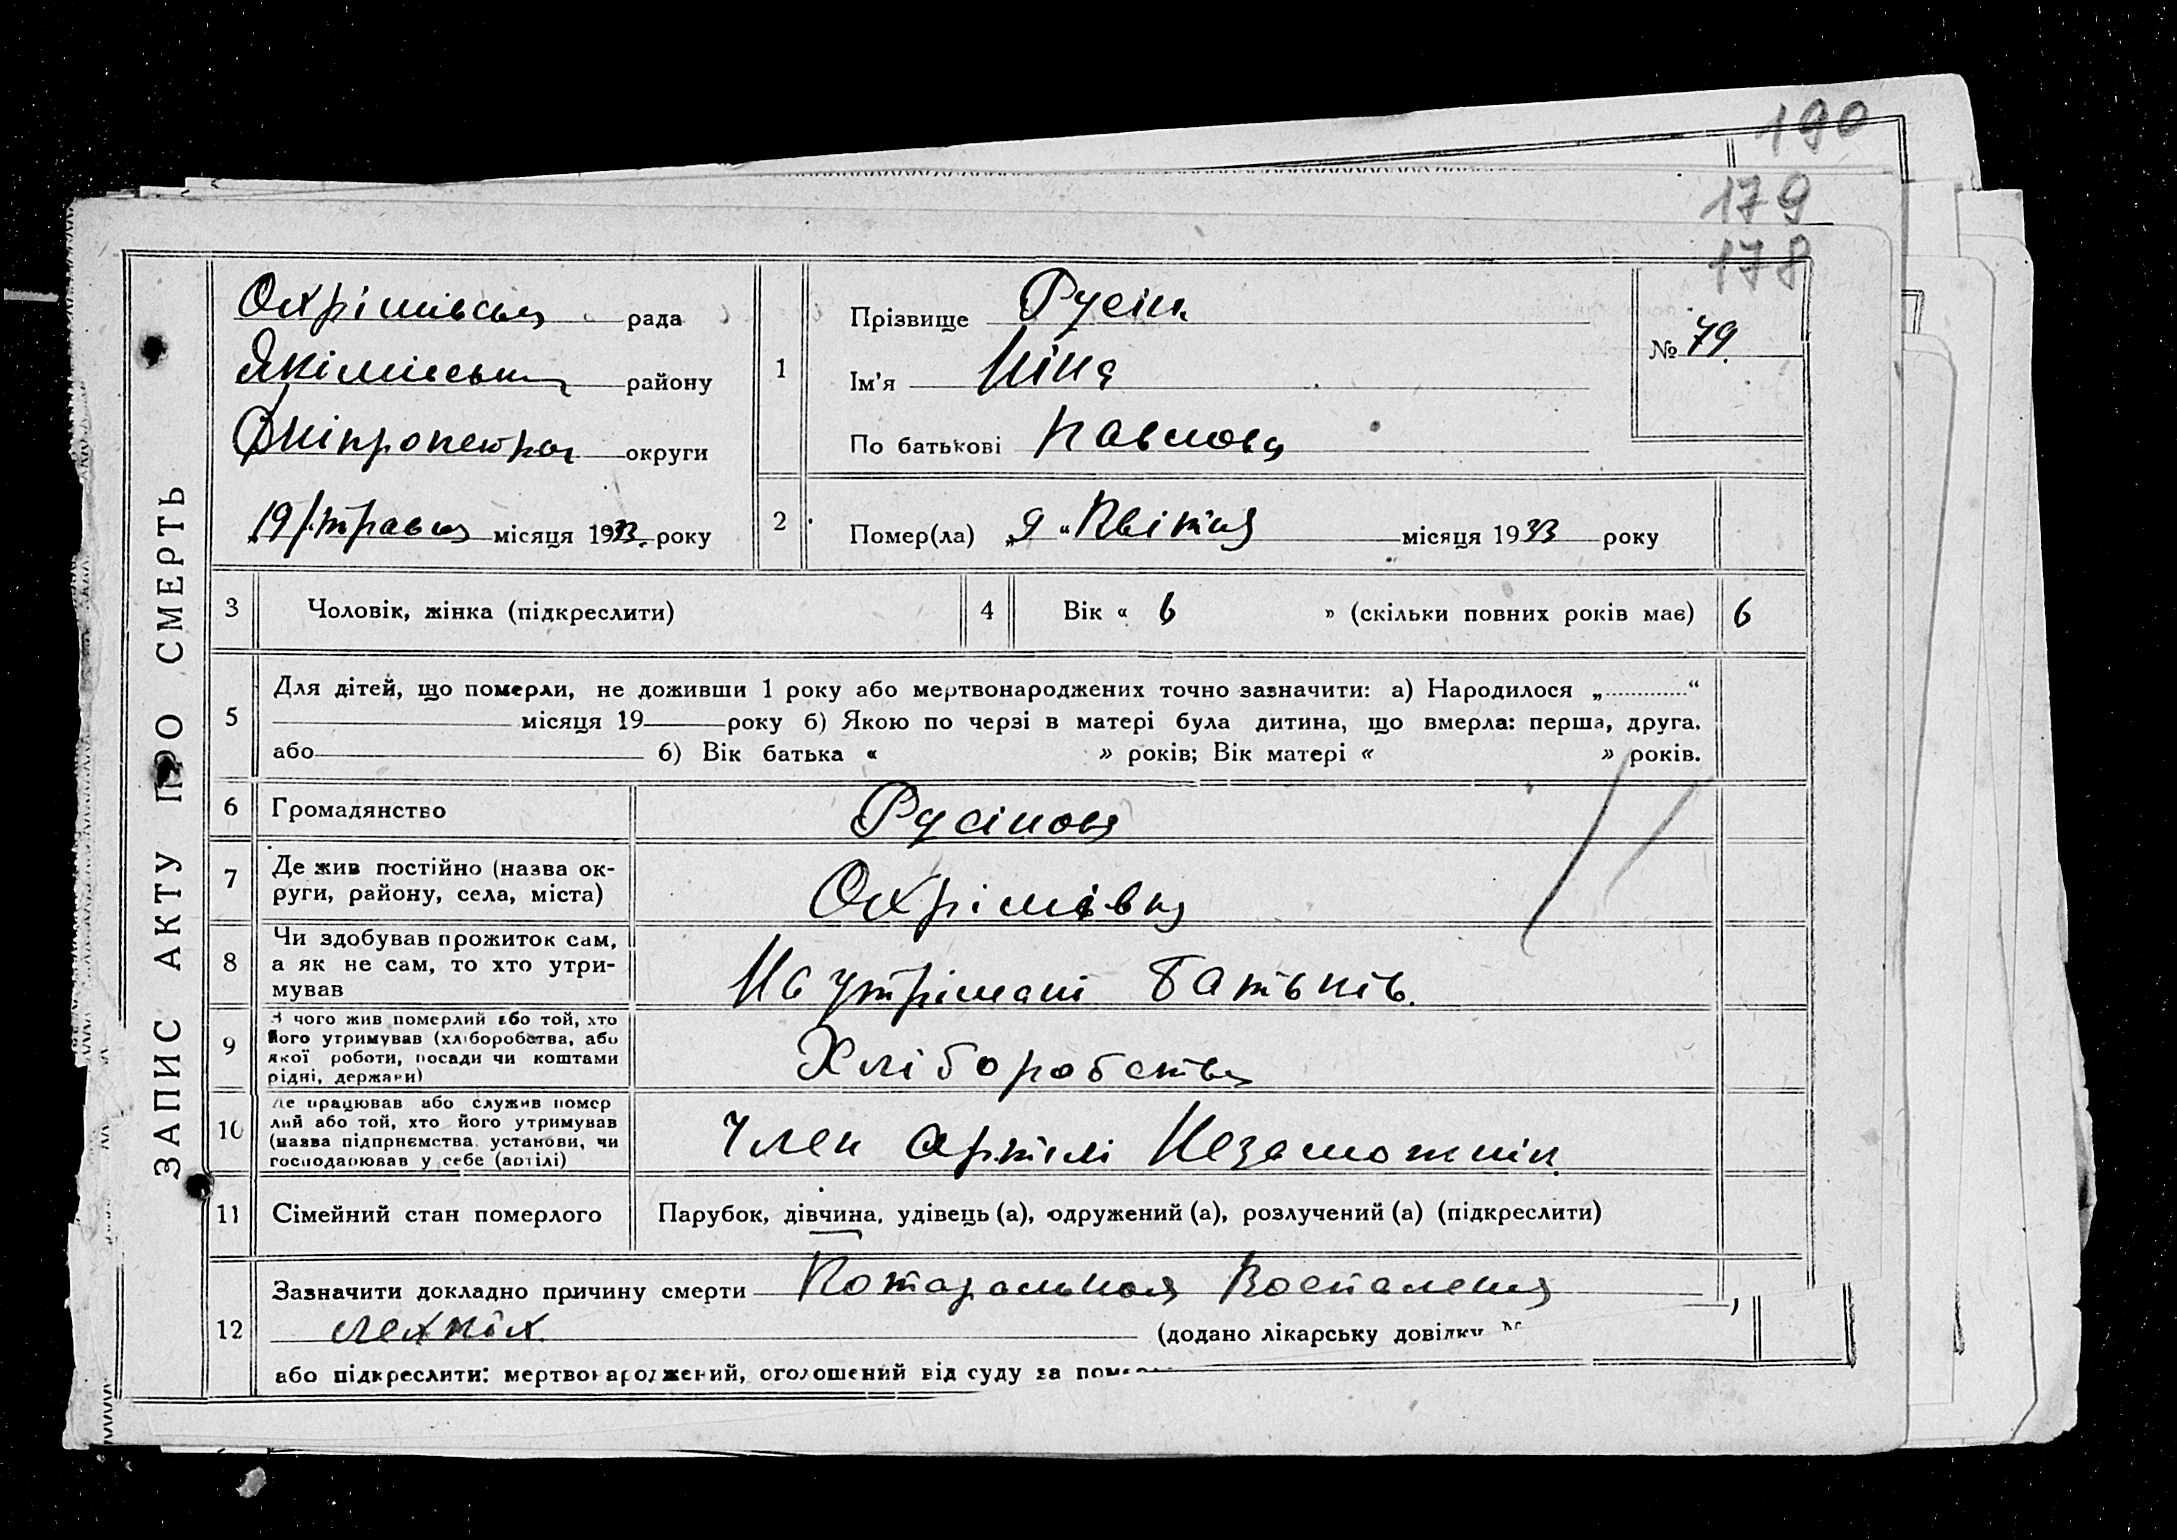 190
179
178
ЗАПИС АКТУ ПРО СМЕРТЬ
Охрімівська рада
Якімівськ району
Дніпропетров округи
19/травня місяця 1933 року
1
Прізвище Русін
Ім'я Ніна
По батькові Павлова
№ 79
2
Помер(ла) „9“ Квітня місяця 1933 року
3 Чоловік, жінка (підкреслити)
4 Вік « 6 » (скільки повних років має) 6
5 Для дітей, що померли, не доживши 1 року або мертвонароджених точно зазначити: а) Народилося „ “
місяця 19 року б) Якою по черзі в матері була дитина, що вмерла: перша, друга,
або б) Вік батька « » років; Вік матері « » років.
6 Громадянство Русінова
7 Де жив постійно (назва ок-
руги, району, села, міста) Охрімівка
8 Чи здобував прожиток сам,
а як не сам, то хто утри-
мував На утрімані батьків.
9 З чого жив померлий або той, хто
його утримував (хліборобства, або
якої роботи, посади чи коштами
рідні, держави) Хліборобства
10 Де працював або служив помер
лий або той, хто його утримував
(назва підприємства, установи, чи
господарював у себе (артілі) Член артілі Незаможнік
11 Сімейний стан померлого Парубок, дівчина, удівець (а), одружений (а), розлучений (а) (підкреслити)
12 Зазначити докладно причину смерти Котаральная Воспаления
лехкіх (додано лікарську довідку №
або підкреслити: мертвонароджений, оголошений від суду за